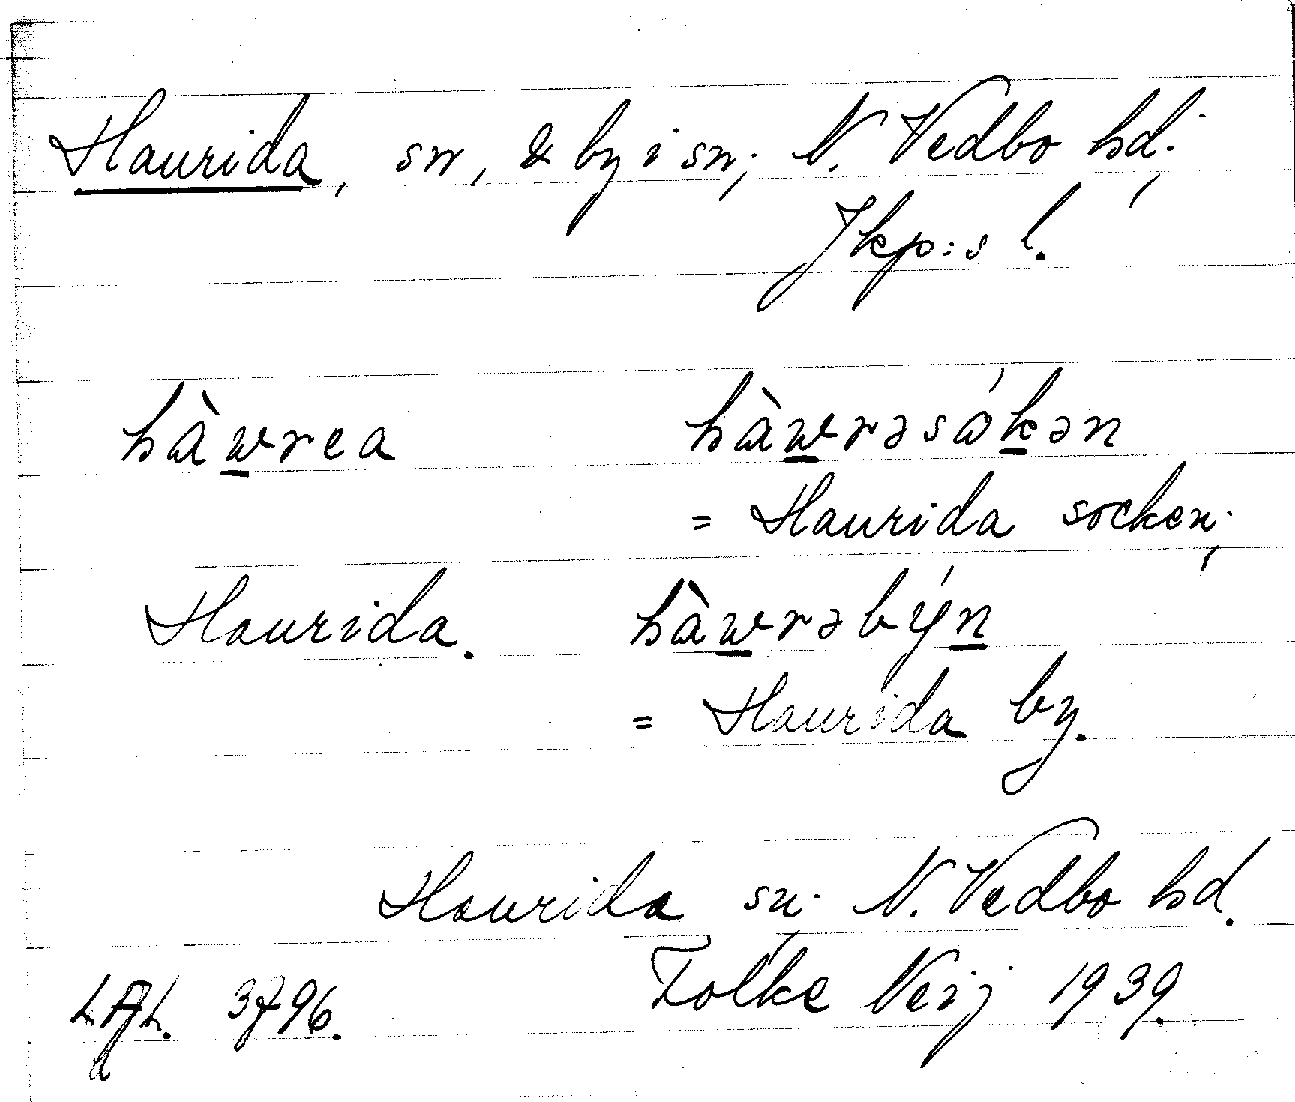 Haurida, sn, & by i sn; N. Vedbo hd;
Jkp:s l.
hàwrea hàwrəsókən
= Haurida socken;
Haurida. hàwrəbýn
= Haurida by.
Haurida sn. N. Vedbo hd.
3796. Folke Neij 1939.